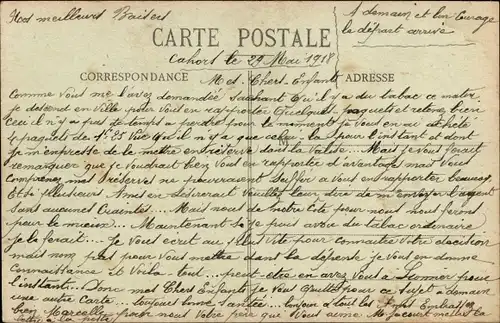 Nos meilleurs Baisers
A demain et bon Courage
le départ arrive
CARTE POSTALE
Cahors le 29 Mai 1918
CORRESPONDANCE
Mes Chers Enfants
ADRESSE
Comme Vous me l'avez demandée Sachant Qu'il y a du tabac ce matin
je descend en Ville pour Voir en rapporter Quelques paquets et retenez bien
ceci il n'y a pas de temps a perdre pour le moment je Vous en ai acheté
paquets de 1f 25 Vu Qu'il n'y a que celui la pour l'instant et dont
je m'empresse de le mettre en réserve dans la Valise Mais je Vous ferait
remarquer que je Voudrait bien Vous en rapportée d'avantage mais Vous
Comprenez mes réserves ne pourraient Suffir a Vous en rapporter beaucoup
Et si plusieurs Amis en désirerait Veuillez leur dire de m'envoyer l'argent
Sans aucunes Craintes Mais nous de notre Coté pour nous nous ferons
pour le mieux Maintenant Si je peux avoir du tabac ordinaire
je le ferait Je Vous écrit au plus Vite pour connaitre Votre décision
mais non pas pour Vous mettre dans la dépense je Vous en donne
Connaissance Et Voila tout peut être en avez Vous a Sumner pour
l'instant Donc mes Chers Enfants je Vous Quitte pour ce Sujet a demain
une autre Carte toujours bonne Santée bonjour a tous les Amis Embrassez
bien Marcelle pour nous Votre père que Vous aime M. Jacourt mettez la